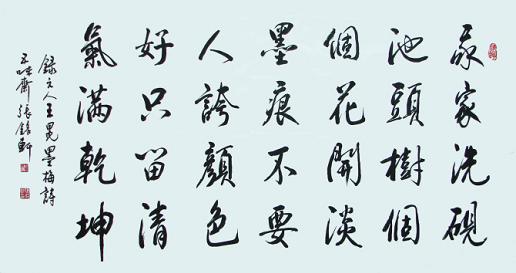 我家洗硯
池頭樹個
個花開淡
墨痕不要
人誇顏色
好只留清
氣滿乾坤
錄元人王冕墨梅詩
齋張軒